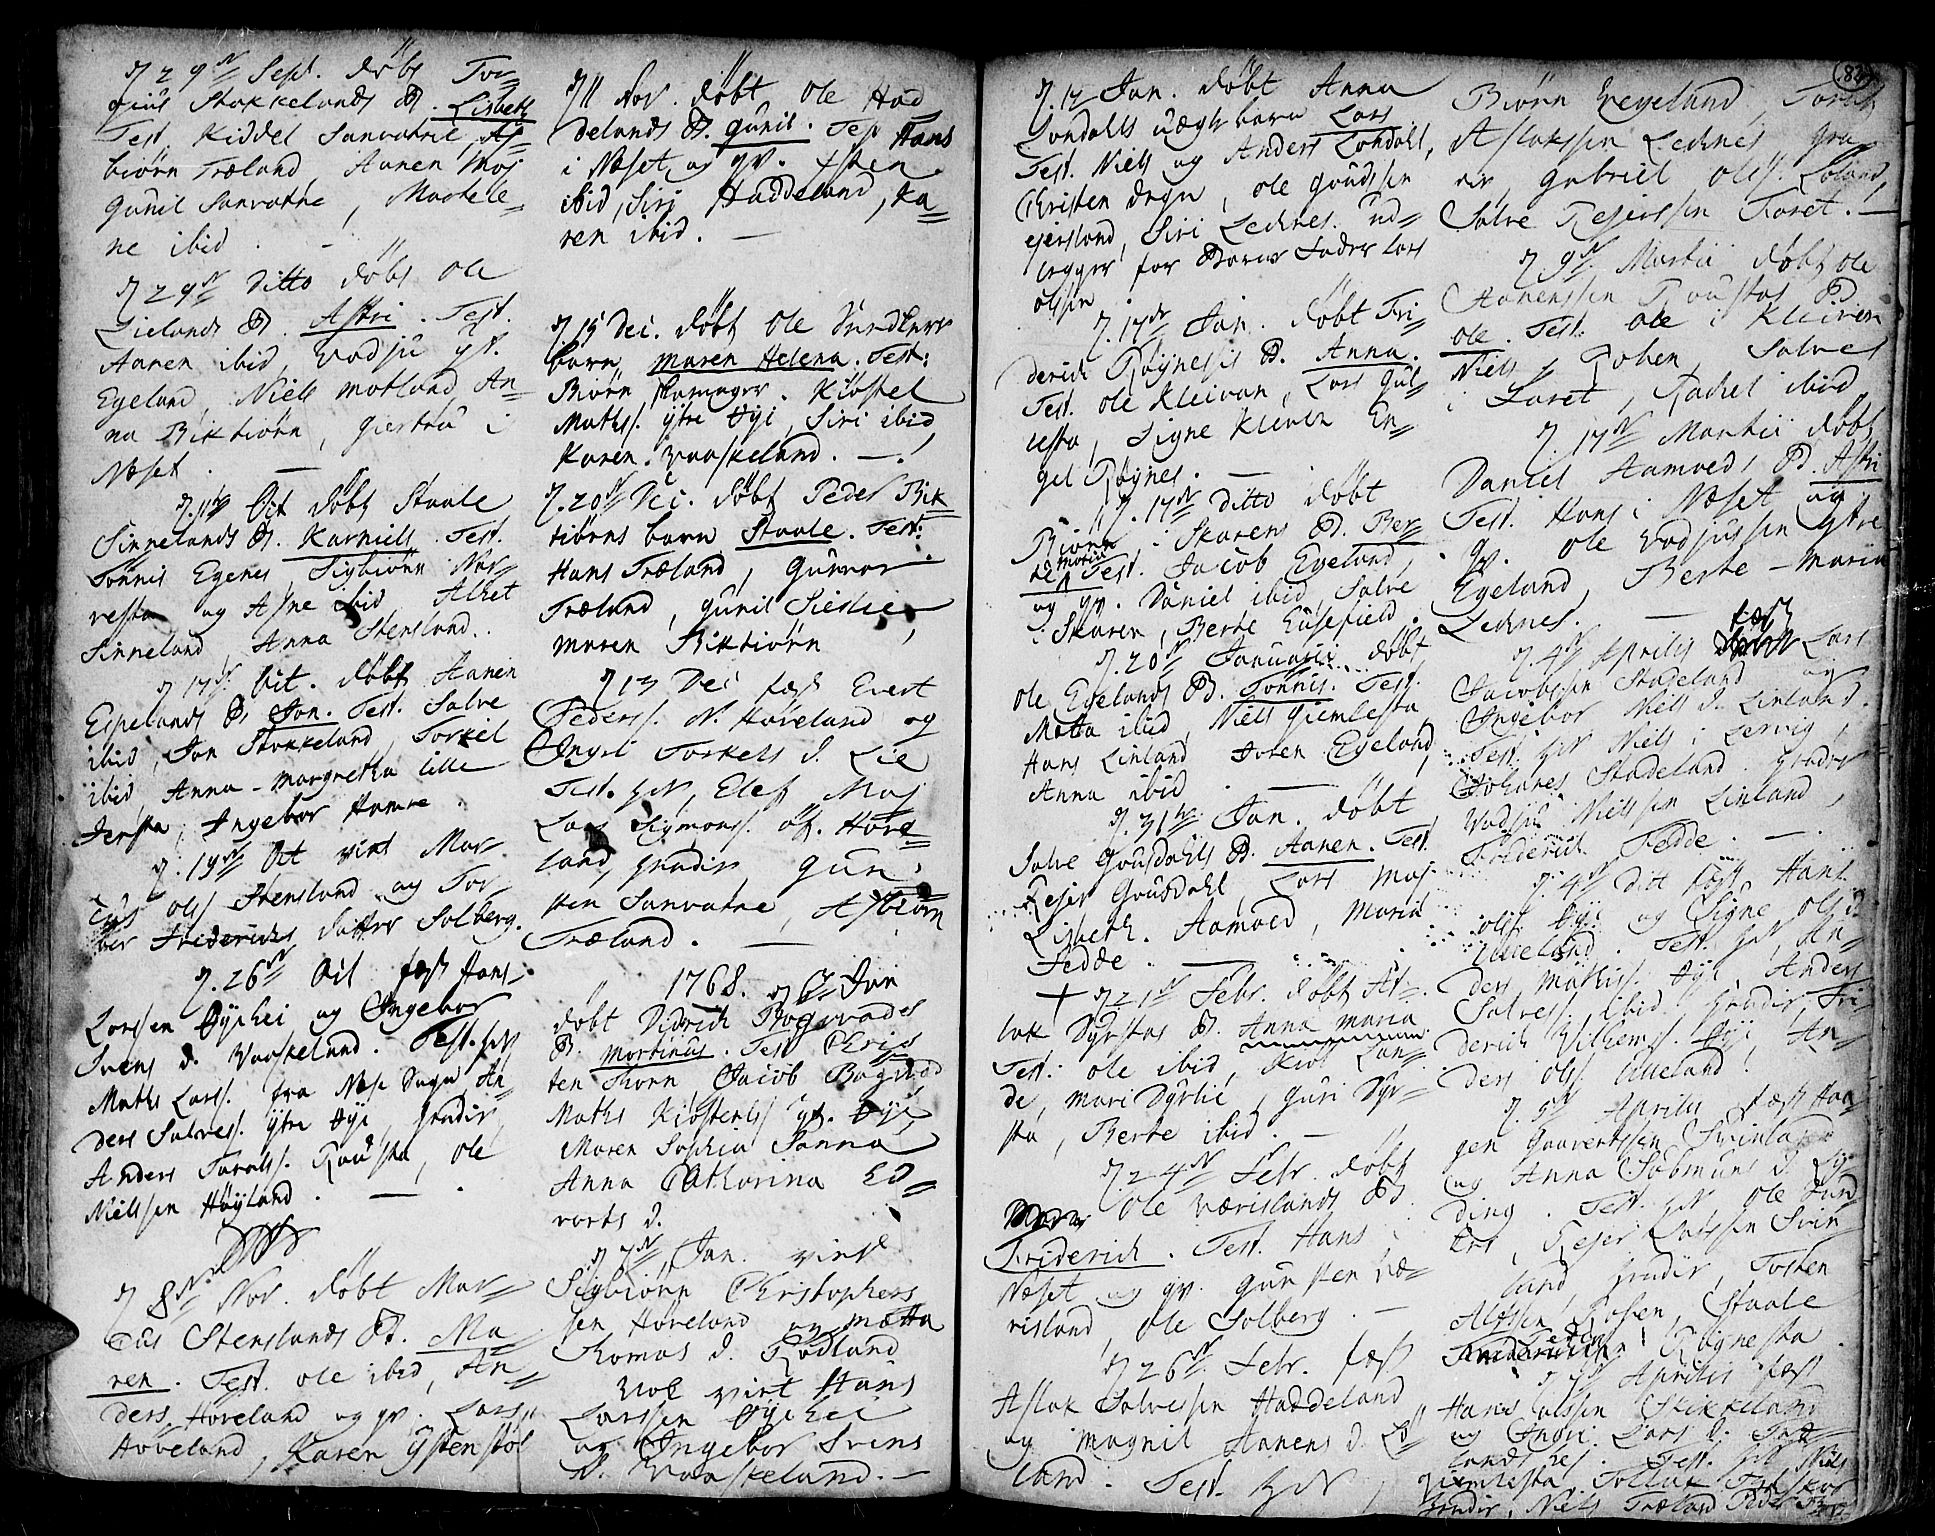 d 29de Sept. døbt Tor=
gius Stakkelands B. Lisbeth
Test. Kiddel Sanvatne, As=
biørn Træland, Aanen Moj
Gunil Sanvatne, Marhele=
ne ibid.
d 29de Ditto døbt Ole
Lielands B. Astri. Test.
Aanen ibid, Vadju yt.
Egeland, Niels Motland, An=
na Birktiørn, Giertru i
Næset.
d. 11te Oct døbt Staale
Sinnelands B. Karniels. Test.
Tønnis Egenes, Sigbiørn Nor=
resta og Asne ibid, Alhet
Sinneland, Anna Stensland.
d 17de Oct. døbt Aanen
Espelands B. Jon. Test. Salve
ibid, Jon Stakkeland, Torkel
ibid, Anna-Margretha Lille
Jersta, Ingebor Hamre.
d. 19de Oct viet Mar=
cus Ols. Stensland og Tor=
bor Friderichs datter Solberg.
d. 26de Oct fæst Hans
Larssen Øyhei og Ingebor
Svens d. Vaaskeland. Test. hr
Maths Larss. fra Næse Sogn An=
ders Salvess. ytre Øye, Grudir
Anders Taralss. Rausta, Ole
Nielssen Høyland.
d 8de Nov. døbt Mar=
cus Stenslands B. Ma=
ren. Test. Ole ibid, An=
ders Høveland og qv. Lars
Høveland, Karen Ystenstøl
d 11 Nov. døbt Ole Had
delands B. Gunil. Test Hans
i Næset og qv. Esten
ibid, Siri Haddeland, Ka=
ren ibid.
d. 15 Dec. døbt Ole
barn Maren Helena. Test:
Biørn Skomager. Kiøstel
Mathss. ytre Øye, Siri ibid
Karen. Vaaskeland.
d. 20de Dec. døbt Peder Birk=
tiørns barn Staale. Test:
Hans Træland, Gunvor
Træland, Gunil
Maren Birktiørn
d 13 Dec fæst Evert
Pederss. N. Høveland og
Ingri Torkels d. Lie
Test. hr, Elef Moj
Lars Sigmonss. øf. Høve=
land, Grudir Gun=
sten Sanvatne, Asbiørn
Træland.
1768. d 3 Jan
døbt Didrich Bogevades
B. Martinus. Test Chris
ten Thorn Jacob Bogvad
Maths Kiøstelss yt. Øye,
Maren Sophia Sanna
Anna Catharina Ed=
varts d.
d 7de Jan. viet
Sigbiørn Christophers
sen Høveland og Mætta
Thomas d. Rødland
Nok viet Hans
Larssen Øyhei
og Ingebor Svens
d. Vaaskeland.
d. 12 Jan. døbt Anna
Londals uægte barn Lars
Test. Niels og Anders Londahl,
Christen Degn, Ole Gouds
Egersland, Siri Lednes. Ud=
legger for Barne Fader Lars
Olssen
d. 17de Jan. døbt Fri=
derich Røynesis B. Anna.
Test. Ole Kleivan, Lars Gul=
lesta, Signe Kleven En=
gel Røynes.
d. 17de ditto døbt
Biørn i Skarens B. Ber=
te Maria Test. Jacob Egeland,
og qv. Daniel ibid, Salve
i Skaren, Berte Husefield.
d. 20de Januarii døbt
Ole Egelands B. Tønnis. Test.
Mætta ibid, Niels Giemlesta
Hans Linland Joren Egeland,
Anna ibid.
d. 31te Jan. døbt
Salve Gousdahls B. Aanen. Test
Rejer Gousdahl, Lars Moj
Lisbeth. Aamoed, Maria
Fedde.
+ d 21de Febr. døbt As=
lak Dyrstas B. Anna Maria
Test: Ole ibid, Kiøl Lan=
de, Mari Dyrlie, Guri Dyr=
sta, Berte ibid.
d. 24de Febr. døbt
Ole Værislands B.
Friderich. Test. Hans i
Næset og qv. Gunsten Væ=
risland, Ole Solberg.
d 26de Febr. fæst
Aslak Salvessen Haddeland
og Magnil Aanens d. Lø=
land. Test. hr
82
Biørn Evegeland, Torals
Aslakssen Lednes, Gru
dir, Gabriel Olss. Løland,
Salve Rejerssen Faret.
d 9de Martii døbt Ole
Aanenssen Roustas B
Ole. Test: Ole i Kleiven
Niels Roben, Salve
i Faret, Rachel ibid
d. 17de Martii døbt
Daniel Aamoeds B. Astri
Test. Hans i Næset og
qv. Ole Vadjussen ytre
Egeland, Berte-Maria
Lednes.
d. 4de Aprilis fæst Lars
Jacobssen Stadeland og
Ingebor Niels d. Linland.
Test: hr Niels i Lervig,
Johanes Stadeland. Grudir
Vadju Nielssen Linland,
Friderich Fedde.
d. 4de dito fæst Hans
Ols. Øye og Signe Ols d.
Ulleland. Test. hr An=
ders Mathiss. Øye, Anders
Salvess. ibid. Grudir, Fri=
derich Vilhemss. Øye, An=
ders Olss. Ulleland.
d. 5de Aprilis fæst Haa=
gen Gouvertssen Svinland
og Anna Sebmuns d. Ly
ding. Test. hr Ole
Rejer Larssen Svin
land, Grudir, Tosten
Alfssen Roben, Staale
Tedens Røgnesta.
d 7de Aprilis fæst
Hans Olssen Skikkeland
og Ingri Lars d.
landshej. Test. hr Niels
Giemlesta. Tollak
Grudir, Niels Træland Peder